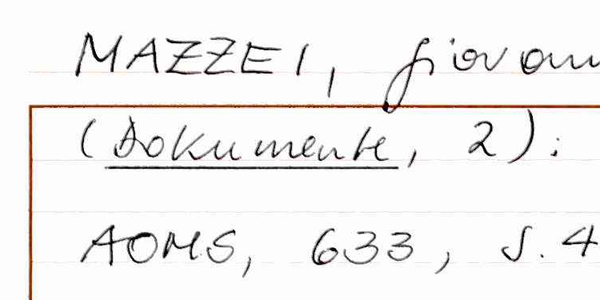 MAZZEI, Giovan
(Dokumente, 2):
AOMS, 633, S.4